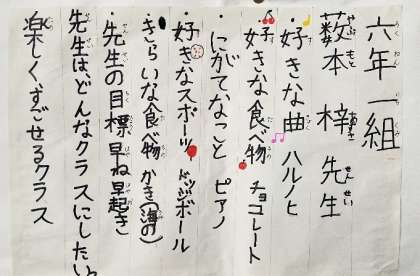 六年一組
薮本 梓 先生
・好きな曲 ハルノヒ
・好きな食べ物 チョコレート
・にがてなこと ピアノ
・好きなスポーツ ドッジボール
・きらいな食べ物 かき(海の)
・先生の目標 早ね早起き
先生は、どんなクラスにしたい。
楽しく、すごせるクラス